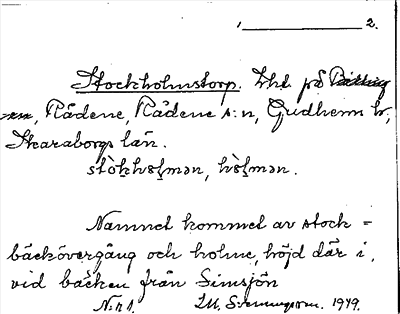 1 2.
Stockholmstorp. Lht på
Rådene, Rådene s:n, Gudhems hd,
Skaraborgs län.
stòkhɷlmən, hòlmən.
Namnet kommet av stock-
bäckövergång och holme, höjd där i,
vid bäcken från Simsjön
N:r 1. 1949.